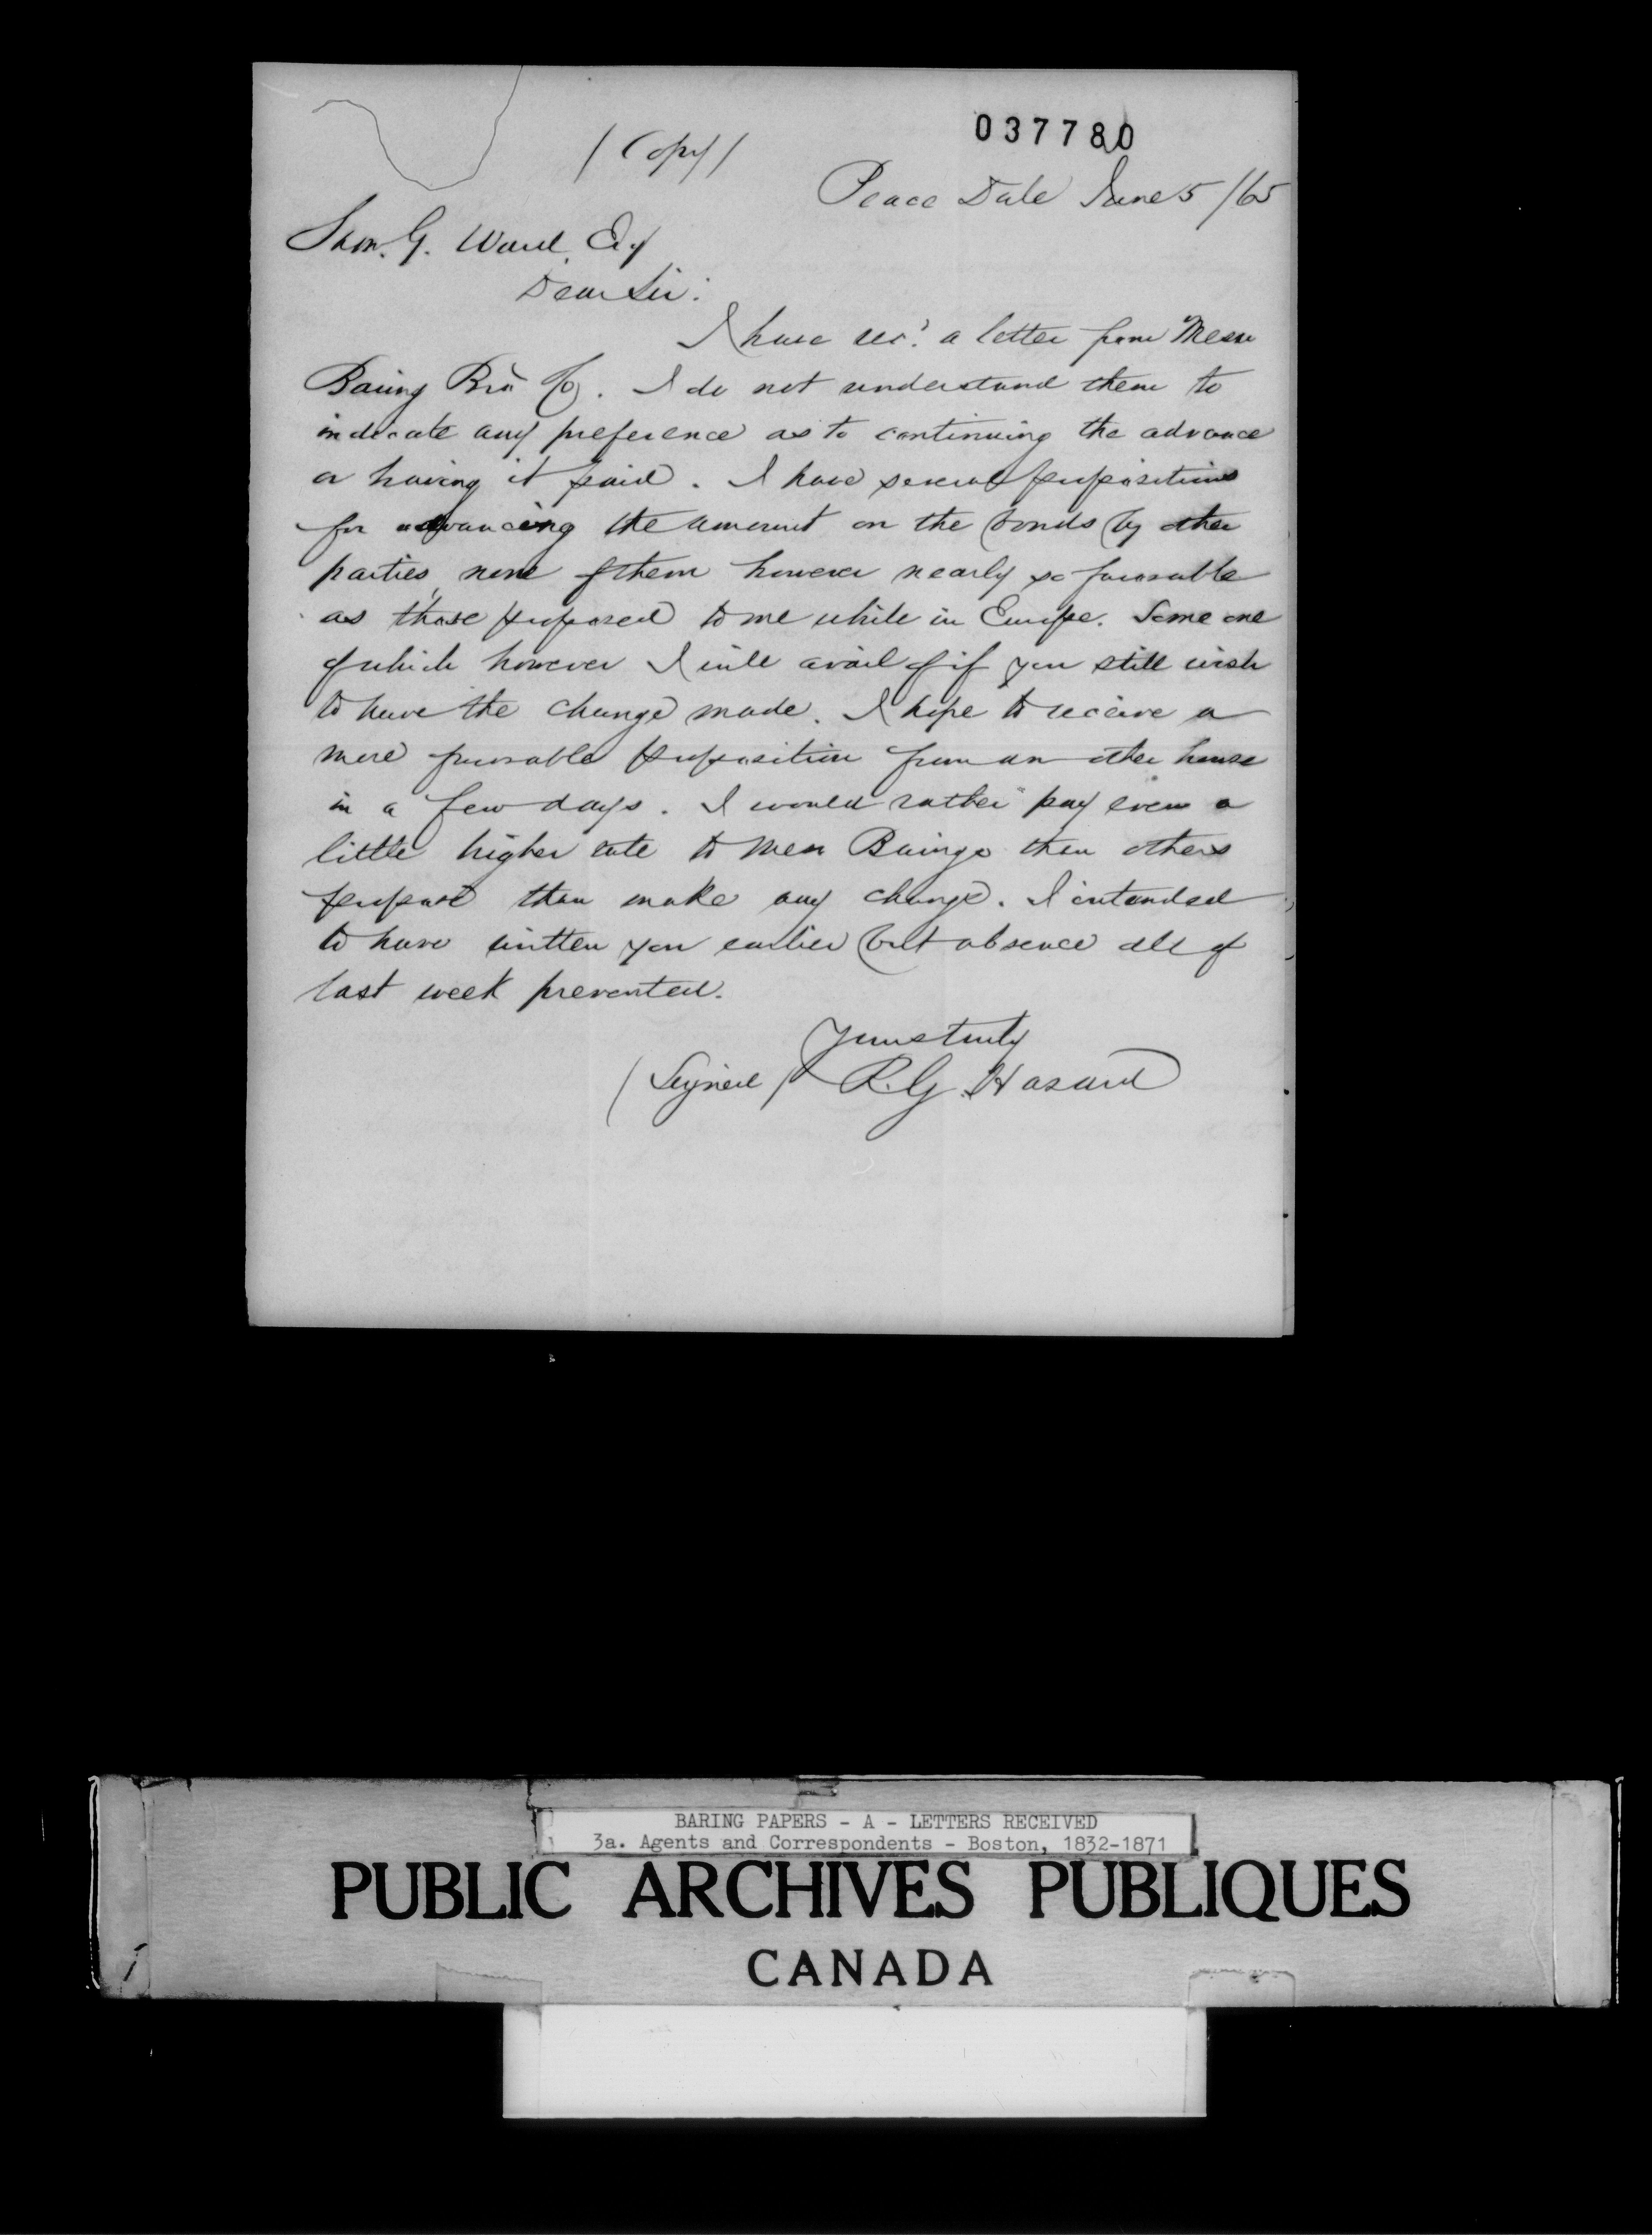 037780
(Copy)
Peace Dale June 5/65
Sam. G. Ward, Esq
Dear Sir:
I have rec'd a letter from Messrs
Baring Bros Co. I do not understand them to
indicate any preference as to continuing the advance
or having it paid. I have several propositions
for advancing the amount on the bonds by other
parties, none of them however nearly so favorable
as those proposed to me while in Europe. Some one
of which however I will avail of if you still wish
to have the change made. I hope to receive a
more favorable proposition from an other house
in a few days. I would rather pay even a
little higher rate to Mess Barings than others
propose than make any change. I intended
to have written you earlier but absence all of
last week prevented.
Yours truly
(Signed) R. G. Hazard
BARING PAPERS - A - LETTERS RECEIVED
3a. Agents and Correspondents - Boston, 1832-1871
PUBLIC ARCHIVES PUBLIQUES
CANADA